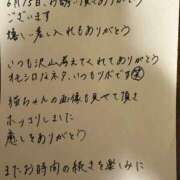 6月15日、お誘い頂きありがとう
ございます
嬉しい差し入れもありがとう
いつも沢山考えてくれてありがとう
オモシロノネタ、いつもツボです笑
猫ちゃんの画像も見せて頂き
ホッコリしました
癒しをありがとう
またお時間の続きを楽しみに